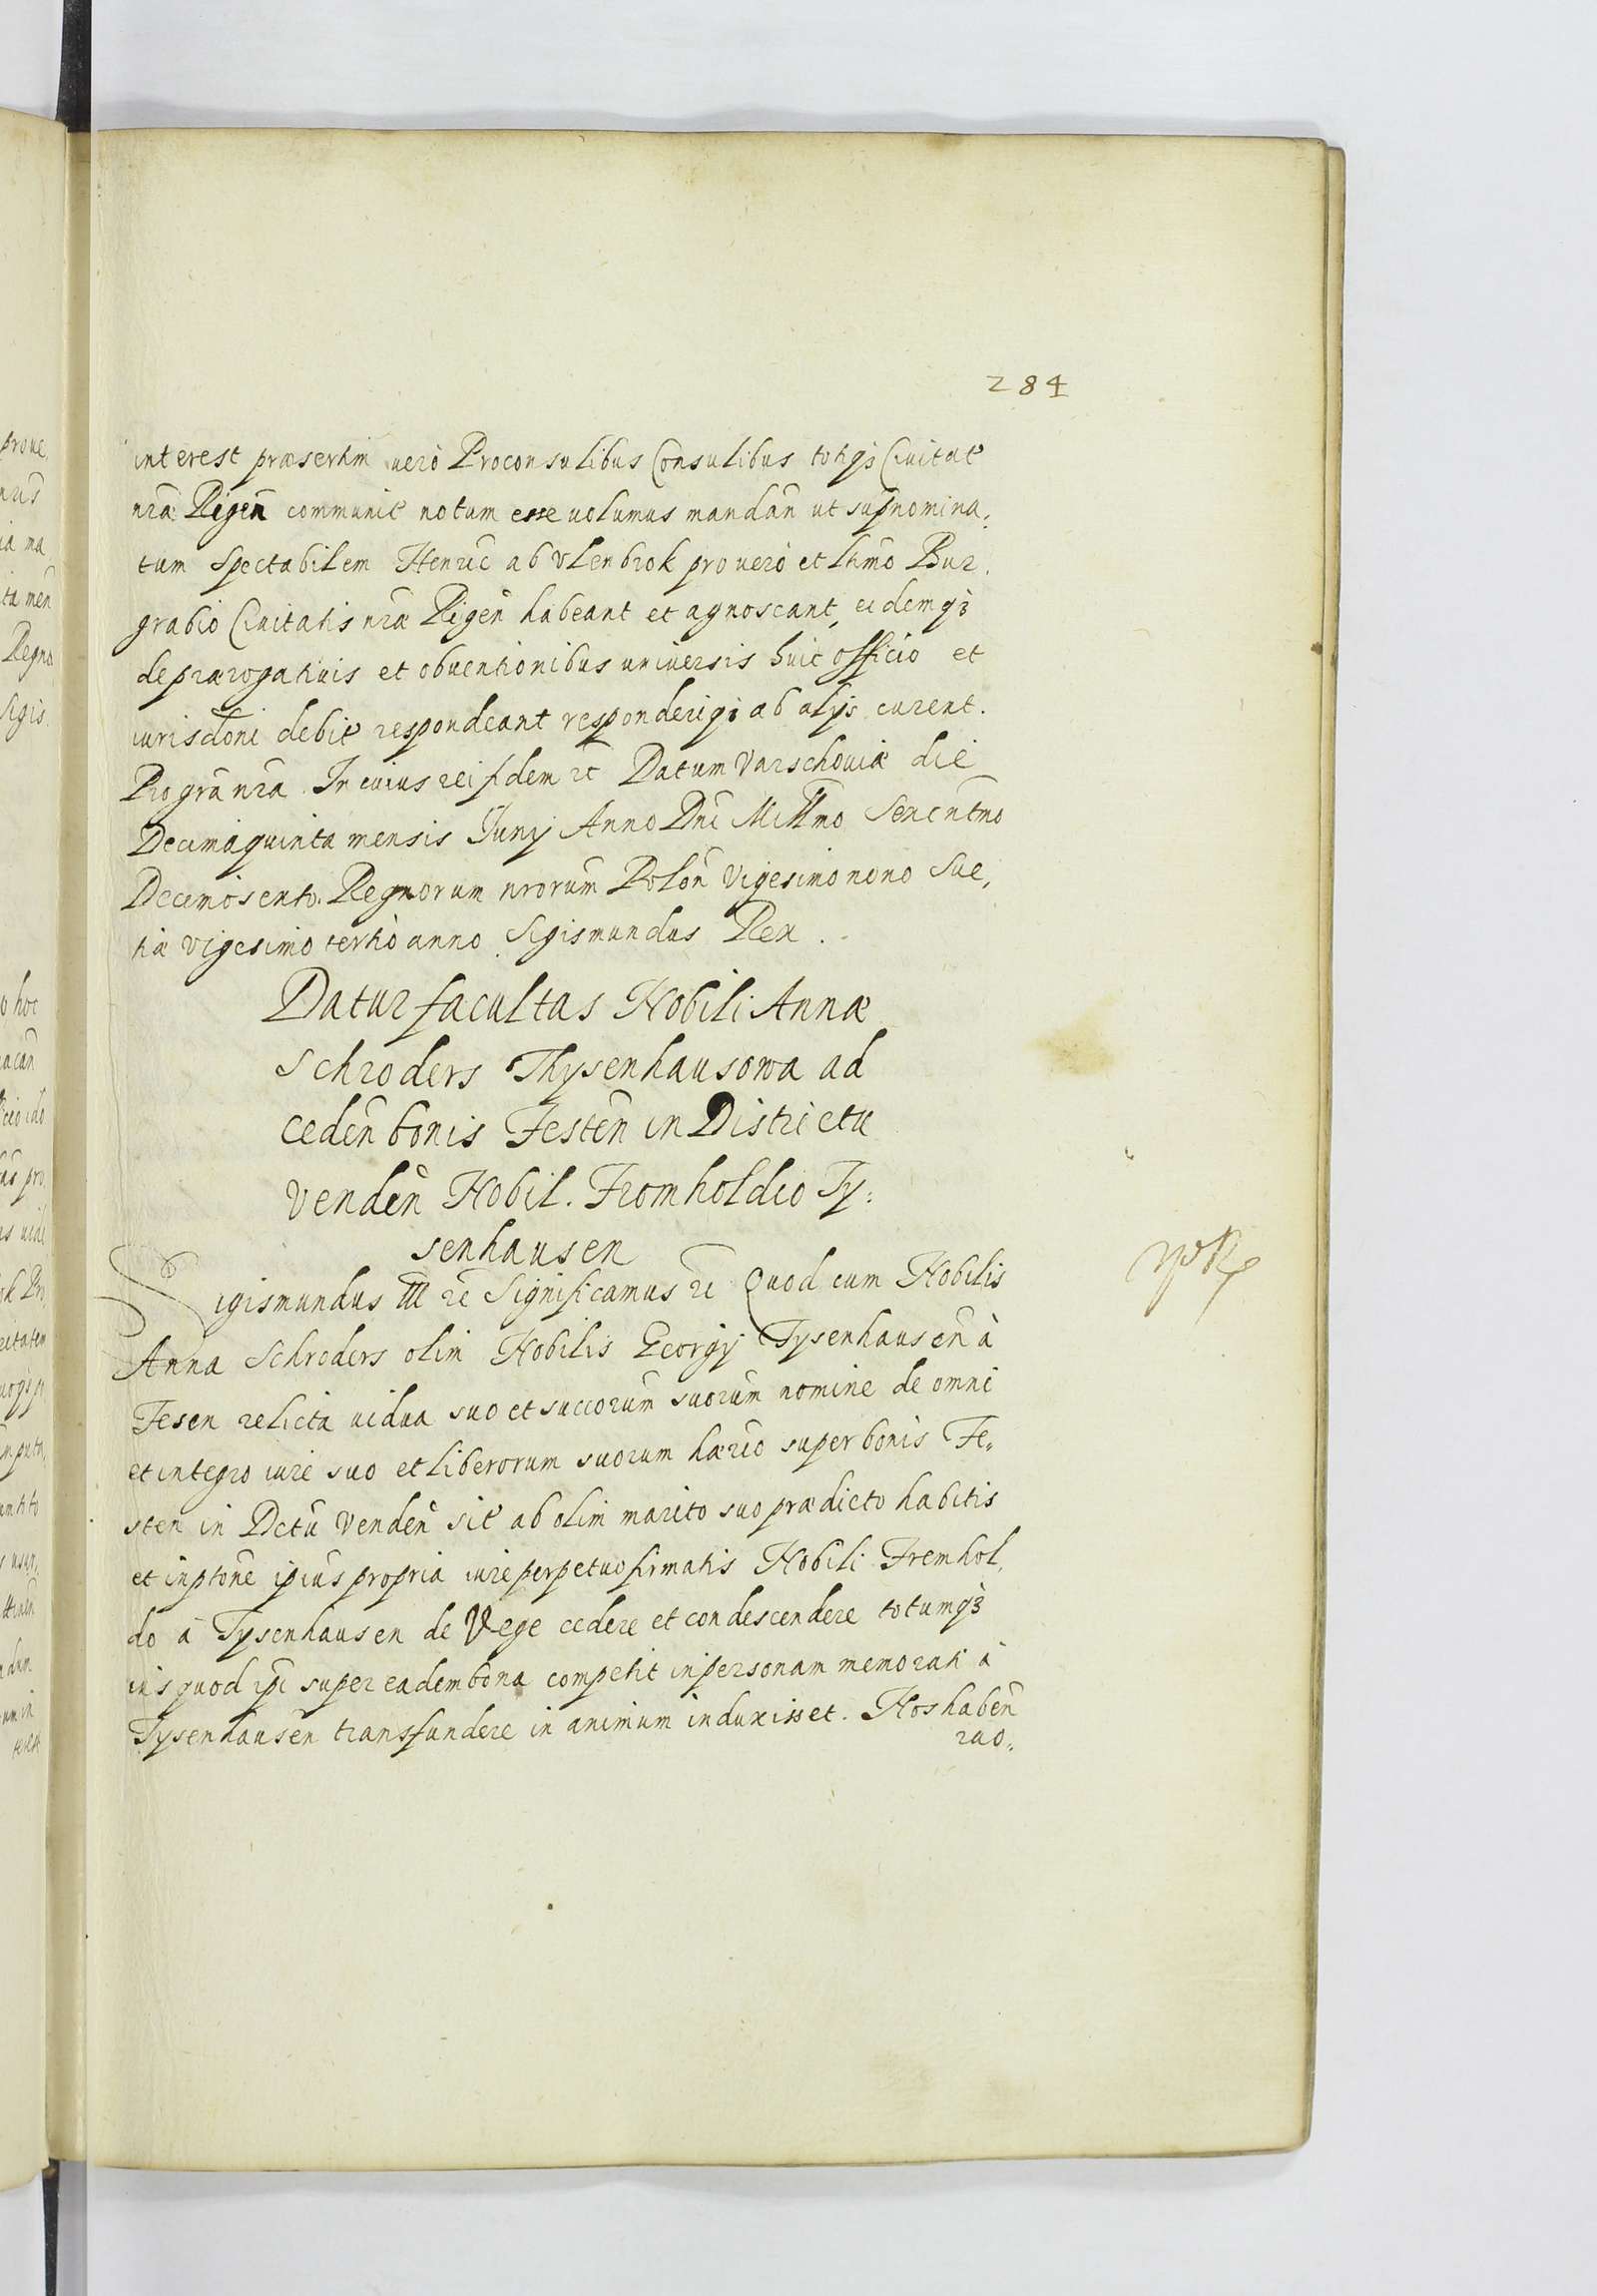 284
interest præsertim vero Proconsulibus Consulibus totiqз Civitat
nrã Rigeñ communit notum esse volumus mandañ ut supnomina,
tum Spectabilem Henric ab Vlenbrok pro vero et lttmo Bur,
grabio Civitatis nrã Rigeñ habeant et agnoscant, eidemqз
de prærogativis et obventionibus universis huic officio et
iurisdoni debit respondeant responderiqз ab alys curent.
Pro grã nrã In cuius rei fidem rc Datum Varschoviæ die
Decimaquinta mensis Juny Anno Dni Millmo Sexcntmo
Decimosexto. Regnorum nrorum Poloñ Vigesimo nono Sue,
tiæ vigesimo tertio anno Sigismundus Rex.
Datur facultas Nobili Annæ
Schroders Thysenhausowa ad
cedeñ bonis Festeñ in Districtu
Vendeñ Nobil. Fromholdio Ty:
senhausen
Sigismundus III rc Significamus rc Quod cum Nobilis
Anna Schroders olim Nobilis Georgy Tysenhauseñ à
Fesen relicta vidua suo et succorum suorum nomine de omni
et integro iure suo et liberorum suorum hærio super bonis Fe,
sten in Dctũ Vendeñ sit ab olim marito suo prædicto habitis
et inptone ipius propria iure perpetuo firmatis Nobili Fremhol,
do à Tysenhausen de Vege cedere et condescendere totumqз
ius quod ipi super eadem bona competit in personam memorati à
Tysenhausen transfundere in animum induxisset. Nos habeñ
rao,